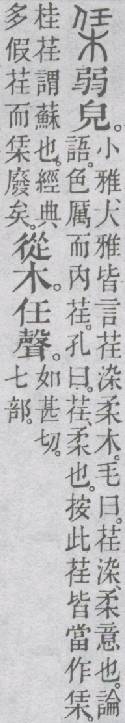 栠弱皃。小雅大雅皆言荏染柔木。毛曰。荏染、柔意也。論
語。色厲而內荏。孔曰。荏、柔也。按此荏皆當作栠。
桂荏謂蘇也。經典
多假荏而栠廢矣。從木。任聲。如甚切。七部。